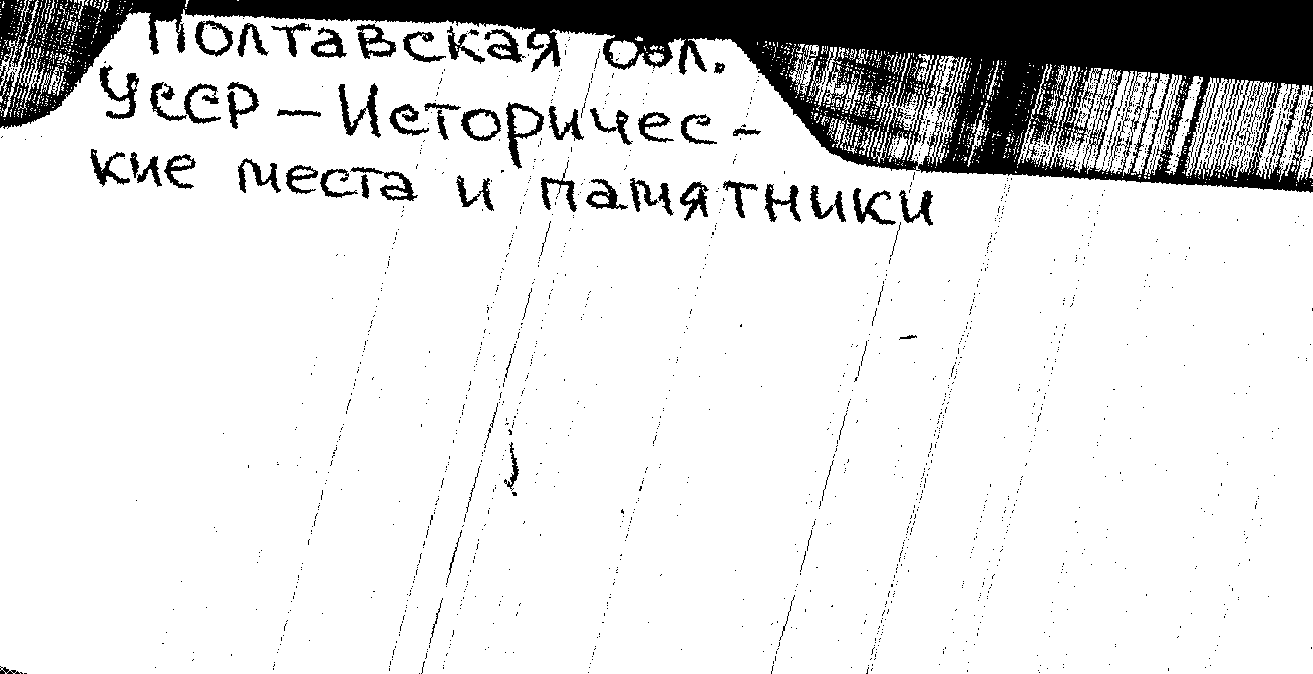 Полтавская обл.
УССР — Историчес-
кие места и памятники